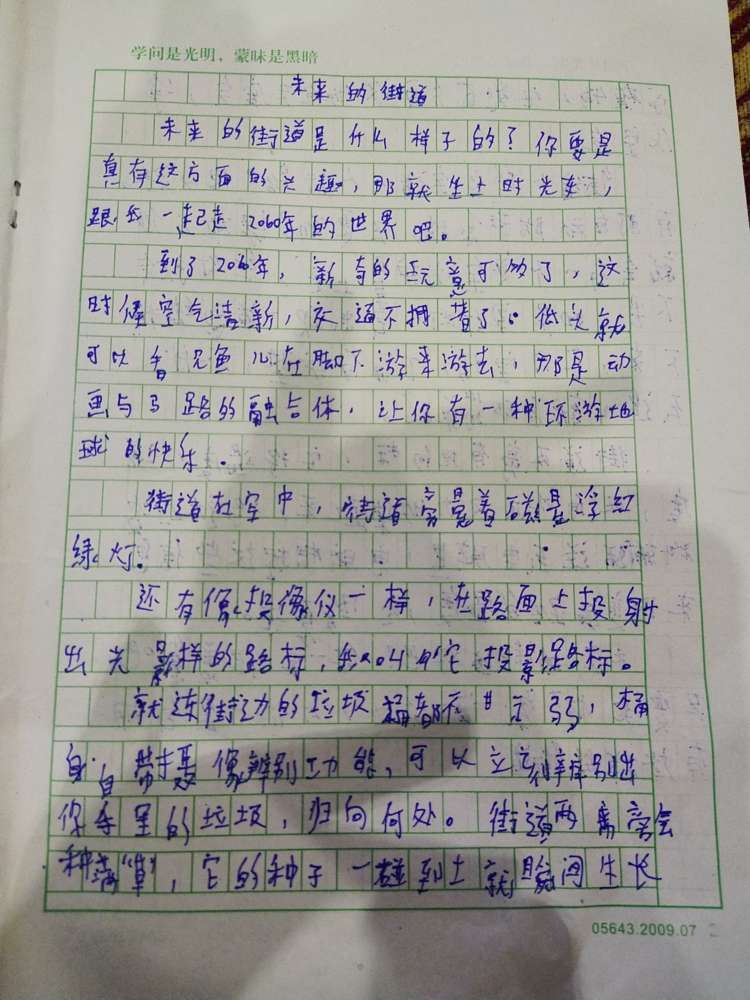 学问是光明，蒙昧是黑暗
未来的街道
未来的街道是什么样子的？你要是
真有这方面的兴趣，那就坐上时光车，
跟我一起走2060年的世界吧。
到了2060年，新奇的玩意可多了，这
时候空气清新，交通不拥堵了。低头就
可以看见鱼儿在脚下游来游去，那是动
画与马路的融合体，让你有一种环游地
球的快乐。
街道在空中，街道旁悬着磁悬浮红
绿灯。
还有像投像仪一样，在路面上投射
出光影样的路标，它投影路标。
就连街边的垃圾桶都不甘示弱，桶
身自带摄像辨别功能，可以立刻辨别出
你手里的垃圾，归向何处。街道两旁会
种满“草”，它的种子一碰到土就瞬间生长
05643.2009.07